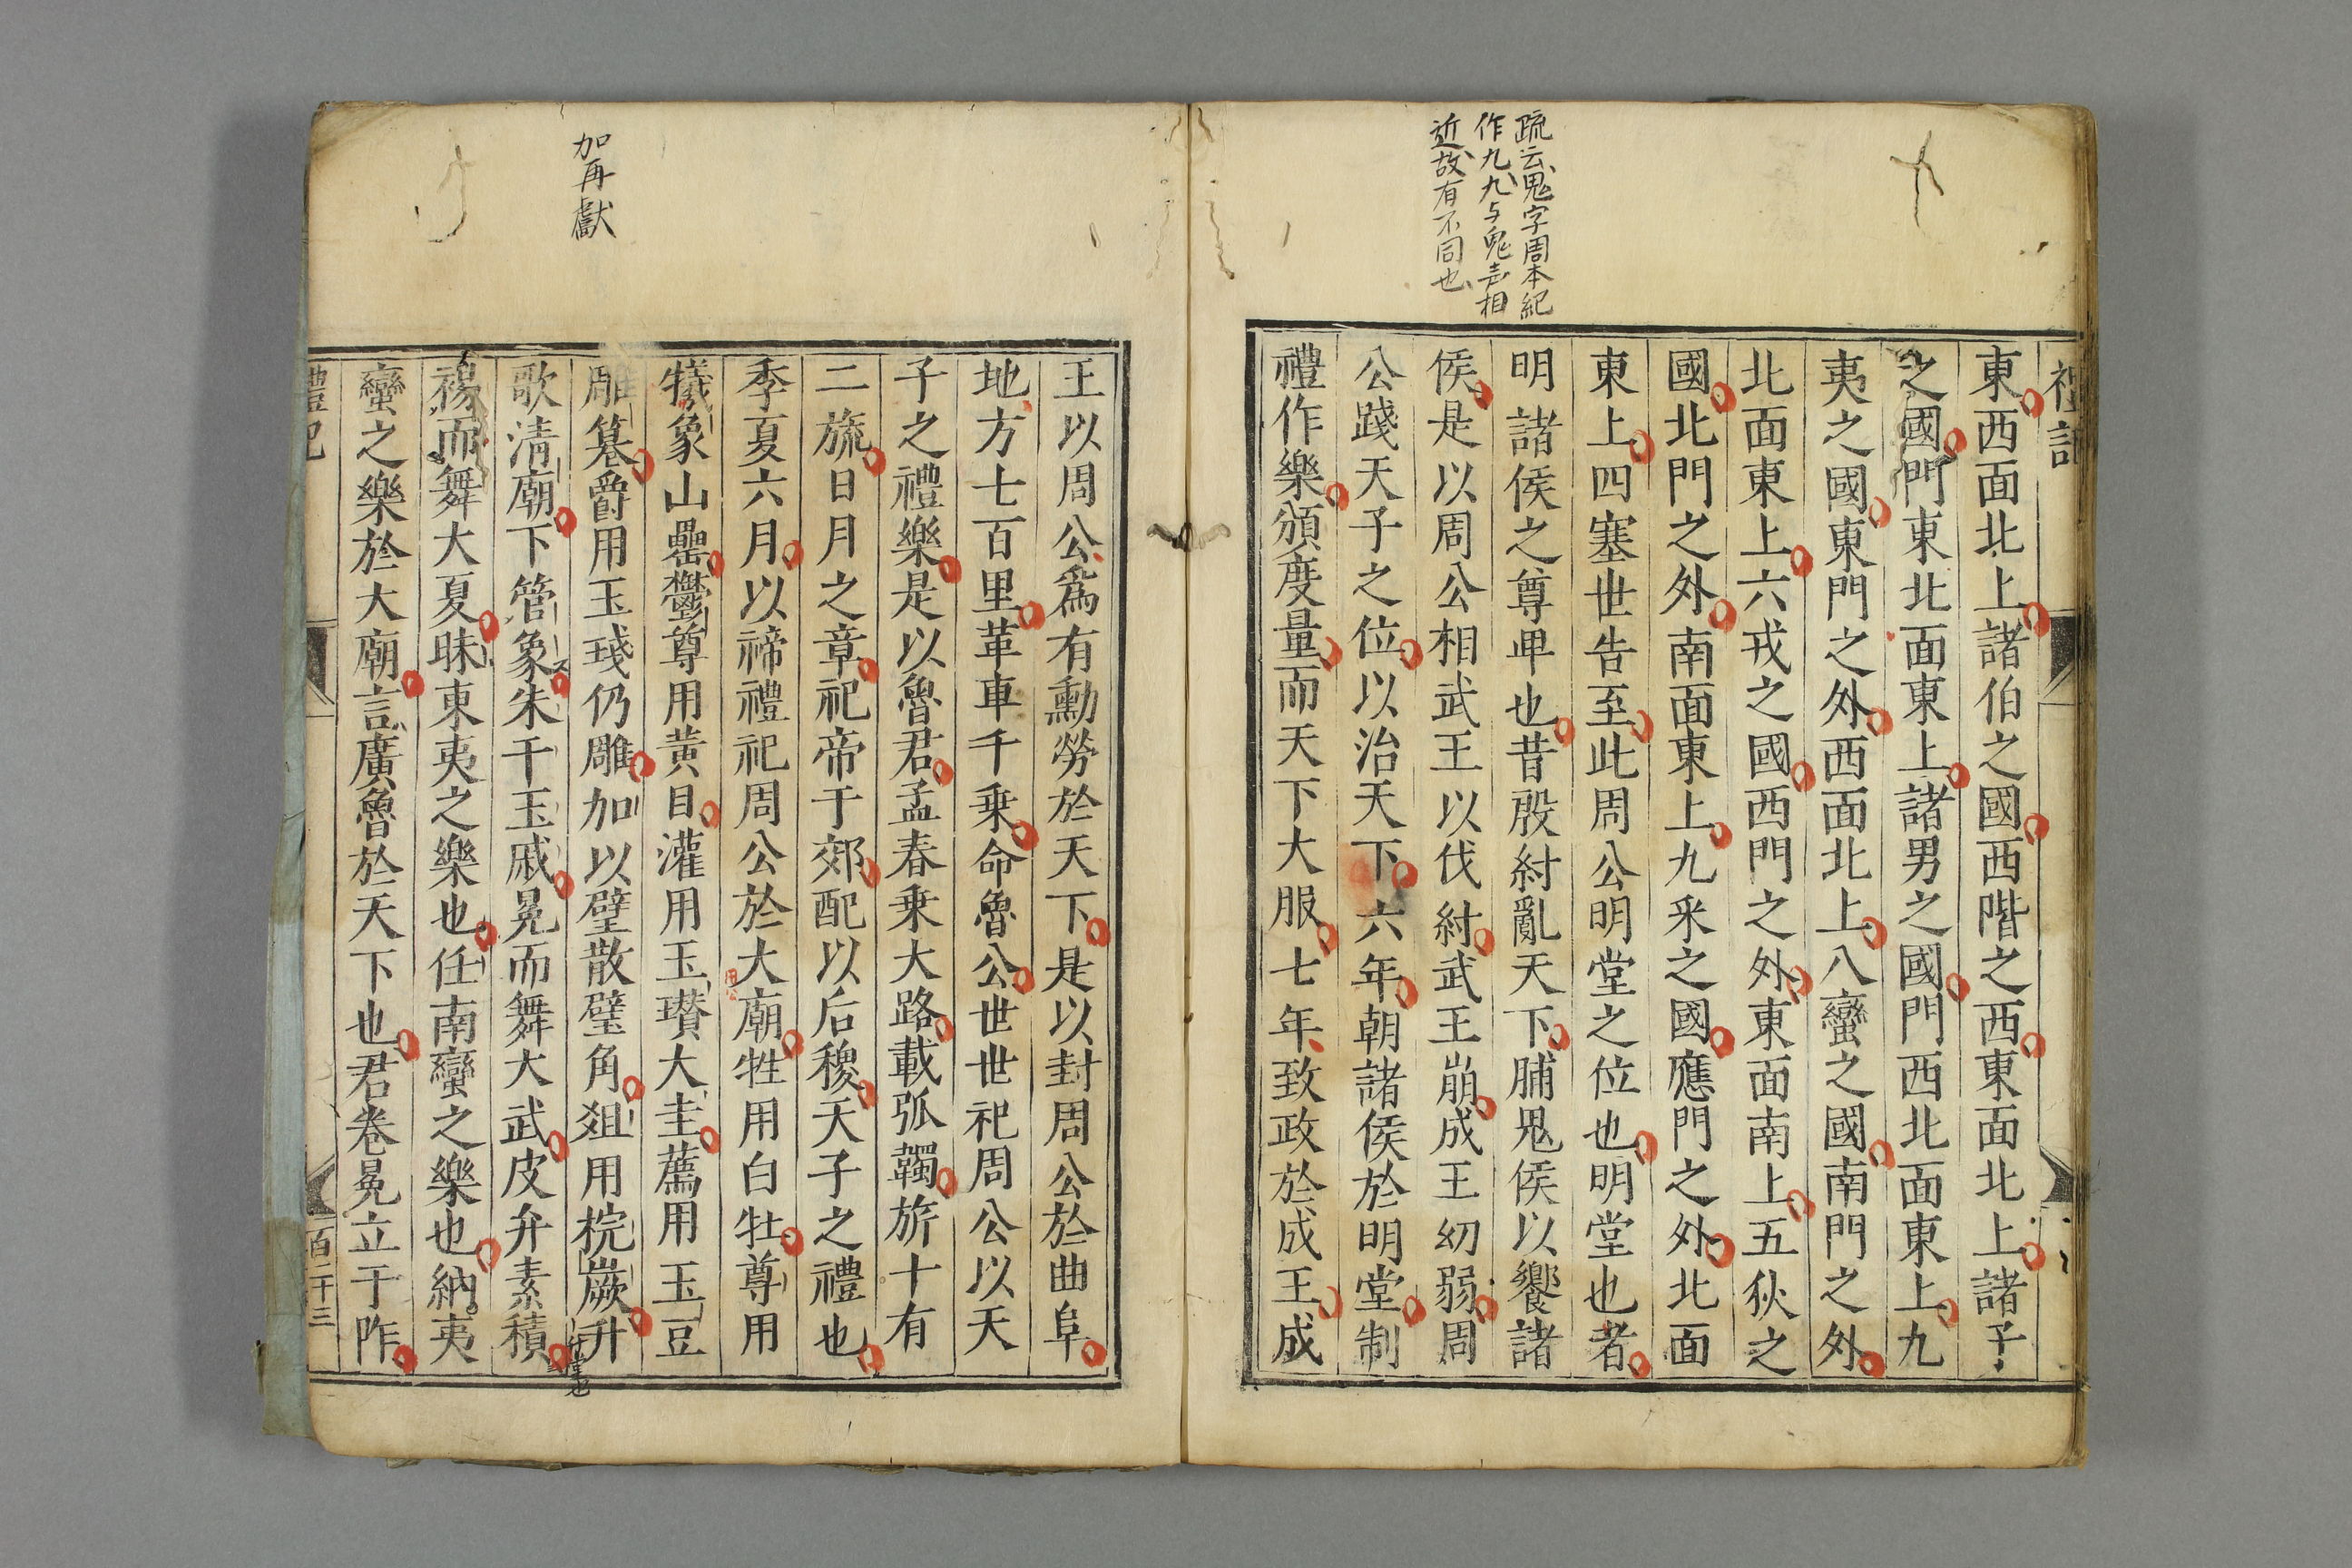 疏云鬼字周本紀
作九九与鬼声相
近故有不同也
禮記
東西面北上諸伯之國西階之西東面北上諸子
之國門東北面東上諸男之國門西北面東上九
夷之國東門之外西面北上八蠻之國南門之外
北面東上六戎之國西門之外東面南上五狄之
國北門之外南面東上九采之國應門之外北面
東上四塞世告至此周公明堂之位也明堂也者
明諸侯之尊卑也昔殷紂亂天下脯鬼侯以饗諸
侯是以周公相武王以伐紂武王崩成王幼弱周
公踐天子之位以治天下六年朝諸侯於明堂制
禮作樂頒度量而天下大服七年致政於成王成
加再獻
王以周公爲有勳勞於天下是以封周公於曲阜
地方七百里革車千乗命魯公世世祀周公以天
子之禮樂是以魯君孟春乗大路載弧韣旂十有
二旒日月之章祀帝于郊配以后稷天子之禮也
季夏六月以禘禮祀周公於大廟牲用白牡尊用
犧象山罍鬱尊用黄目灌用玉瓉大圭薦用玉豆
雕篹爵用玉琖仍雕加以璧散璧角爼用梡嶡升
歌清廟下管象朱干玉戚冕而舞大武皮弁素積
裼而舞大夏昧東夷之樂也任南蠻之樂也納夷
蠻之樂於大廟言廣魯於天下也君卷冕立于阼
禮記
百二十三